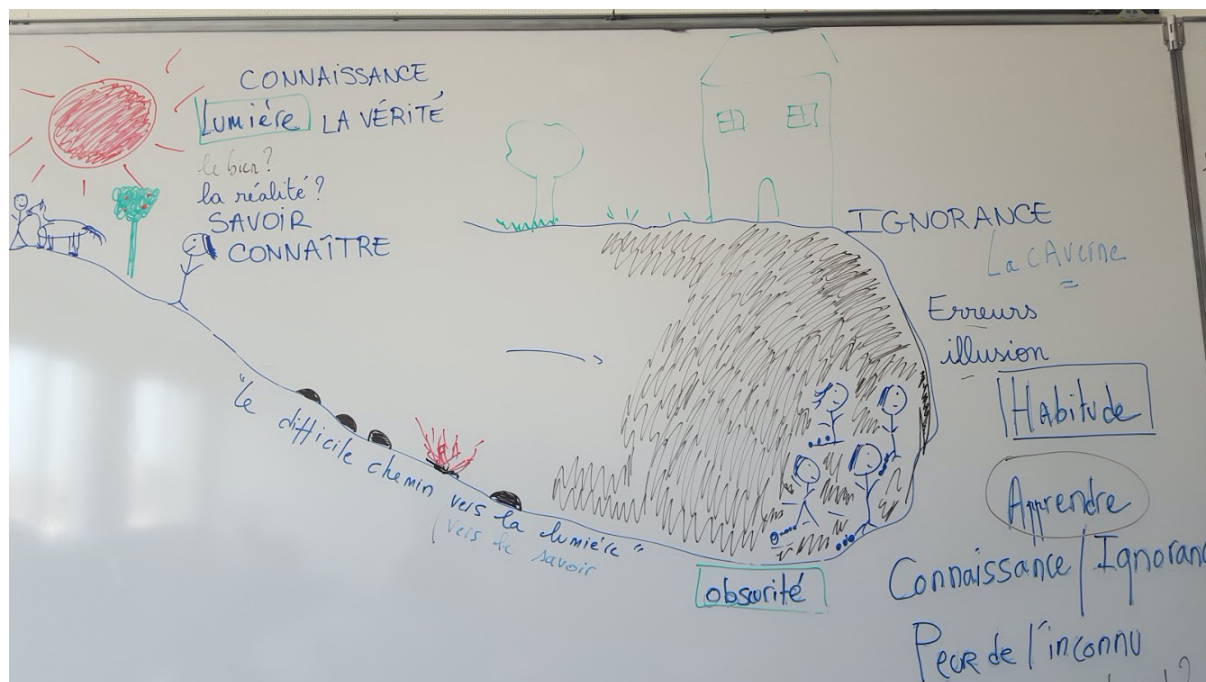 CONNAISSANCE
Lumiére LA VÉRITÉ
le bien?
la réalité?
SAVOIR
CONNAÎTRE
"le difficile chemin vers la lumiére"
(vers le savoir
obscurité
IGNORANCE
La cAverne
Erreurs
illusion
Habitude
Apprendre
Connaissance/Ignoranc
Peur de l'inconnu